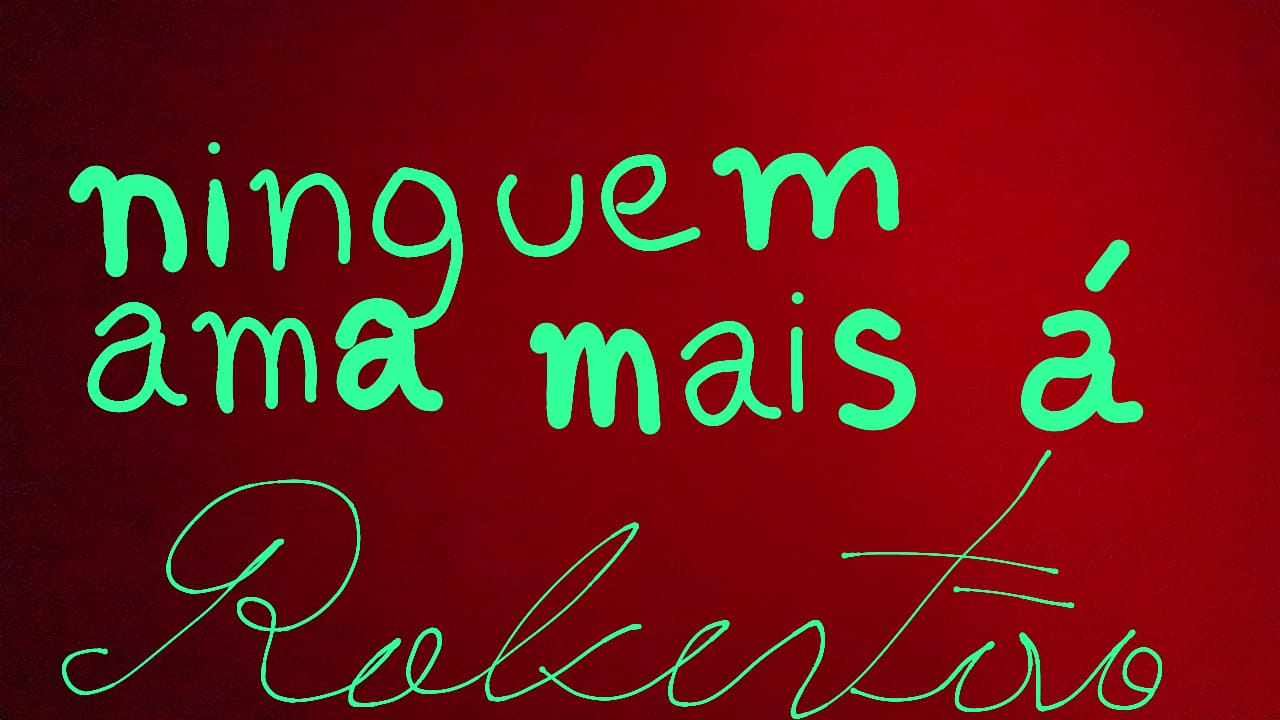 ninguem
ama mais á
Robertão